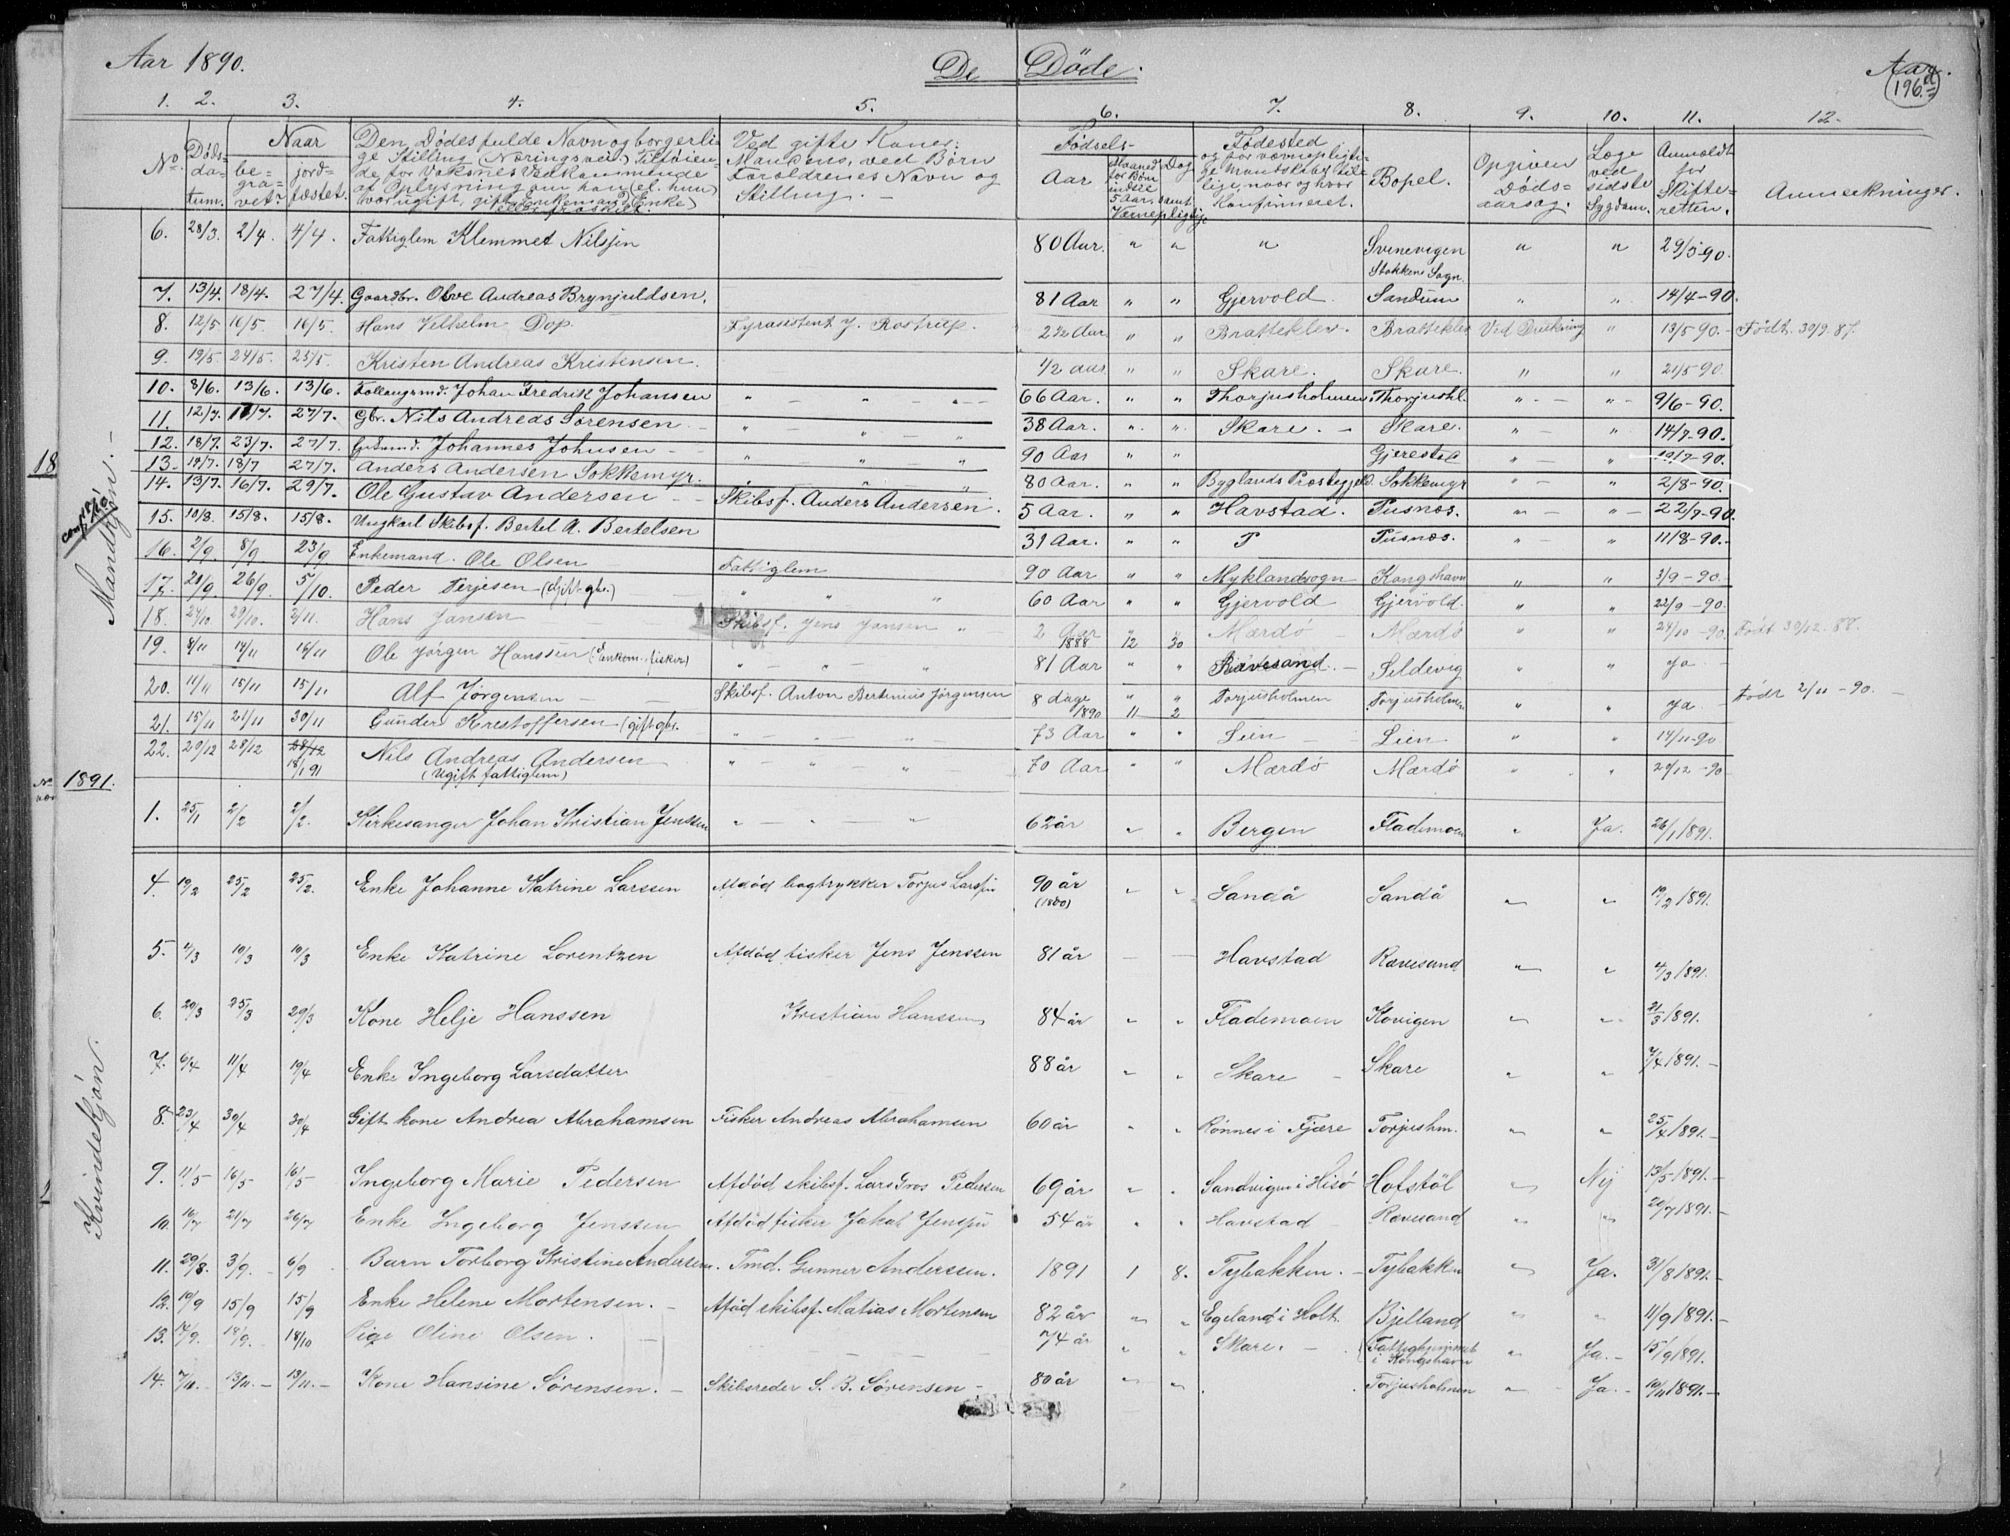 Aar 1890. De Døde. Aar.
196.d
1. 2. 3. 4. 5. 6. 7. 8. 9. 10. 11. 12.
No. Døds-datum. Naar be-gra-vet jord-fæstet. Den Dødes fulde Navn og borgerlige Stilling (Næringsvei) Ved gifte Koner: Mandens, ved Børn Forældrenes Navn og Stilling. Fødsels- Aar Maaned Dag Fødested Bopel. Opgiven Døds-aarsag. Læge ved sidste Sygdom. Anmeldt for Skifte-retten. Anmerkninger.
Mandkjøn.
6. 28/3. 2/4. 4/4. Fattiglem Klemmet Nilsen 80 Aar. " " " Svinevigen " " 29/3-90.
Stokken Sogn
7. 13/4. 18/4. 27/4. Gaardbr. Olve Andreas Brynjuldsen. 81 Aar " " Gjervold Sandum " " 14/4-90.
8. 12/5 16/5. 16/5. Hans Vilhelm Dop. Fyrasistent J. Rostrup. 2 1/2 Aar " " Bratteklev. Bratteklev Ved Drukning " 13/5 90. Født. 30/9. 87.
9. 19/5 24/5. 25/5. Kristen Andreas Kristensen. 1/2 aar " " Skare. Skare. " " 21/5 90
10. 8/6. 13/6. 13/6. Johan Fredrik Johansen " " " 66 Aar. " " Thorjusholmen Thorjushl. " " 9/6-90.
11. 12/7. 17/7. 27/7. Gbr. Nils Andreas Sørensen " " " 38 Aar. " " Skare. Skare. " " 14/7-90.
12. 18/7. 23/7. 27/7. Johannes Johnsen " " " 90 Aar " " Gjerestad " " 19/7-90.
13. 14/7. 18/7 27/7. Anders Andersen Sokkemyr. " " 80 Aar. " " Byglands Præstegjeld. Sokkemyr " " 2/8-90.
14. 13/7. 16/7. 29/7. Ole Gustav Andersen Skibsf. Anders Andersen. 5 Aar. " " Havstad. Pusnes. " " 22/7-90.
15. 10/8. 15/8. 15/8. Ungkarl Skibsf. Bertel A. Bertelsen 31 Aar. " " P Pusnes. " " 11/8-90.
16. 2/9. 8/9 23/9 Enkemand. Ole Olsen Fattiglem 90 Aar " " Myklandsogn Kongshavn " " 3/9-90.
17. 20/9 26/9. 5/10. Peder Terjesen (Gift gbr.) " " " 60 Aar " " Gjervold Gjervold. " " 22/9-90.
18. 24/10 29/10. 2/11. Hans Jansen Skibsf. Jens Jansen 2 Aar " " Mærdø Mærdø " " 24/10-90. Født 30/12. 88.
1888 12 30
19. 8/11 14/11 16/11 Ole Jørgen Hanssen (Enkem. fisker) " " " 81 Aar " " Rævesand Sildevig " " ja
20. 11/11 15/11 15/11 Alf Jørgensen Skibsf. Anton Bertinius Jørgensen 8 dage " " Torjusholmen Torjusholmen " " ja Født 2/11-90.
1890 11 2
21. 15/11 21/11 30/11 Gunder Kristoffersen (gift gbr. " " " 73 Aar " " Lien Lien " " 17/11-90
22. 20/12 28/12 28/12 Nils Andreas Andersen " " " 70 Aar " " Mærdø Mærdø " " 29/12-90
18/1 91 (Ugift fattiglem)
1891.
1. 25/1 2/2 2/2. Kirkesanger Johan Kristian Jenssen " " " 62 år " " Bergen Flademoen " Ja. 26/1 1891.
Kvindekjøn.
4. 19/2 25/2 25/2. Enke Johanne Katrine Larssen Afdød bogtrykker Torjus Larssen 90 år " " Sandå Sandå " " 19/2 1891.
(1800)
5. 4/3 10/3 10/3 Enke Katrine Lorentzen Afdød fisker Jens Jenssen 81 år Havstad Rævesand " " 4/3 1891.
6. 20/3 25/3 29/3 Kone Helje Hanssen Kristian Hanssen 84 år " " Flademoen Kovigen " " 21/3 1891.
7. 6/4 11/4 19/4 Enke Ingeborg Larsdatter 88 år " " Skare Skare " " 7/4 1891.
8. 23/4 30/4 30/4 Gift kone Andrea Abrahamsen Fisker Andreas Abrahamsen 60 år " " Rønnes i Fjære Torjushm. " " 25/4 1891.
9. 11/5 16/5 16/5 Ingeborg Marie Pedersen Afdød skibsf. Lars Gros Pedersen 69 år " " Sandvigen i Hisø Hofstøl " Nej 13/5 1891.
10. 16/7 21/7 26/7 Enke Ingeborg Jenssen Afdød fisker Jakob Jenssen 54 år " " Havstad Rævesand " " 20/7 1891.
11. 29/8. 3/9. 6/9 Barn Torborg Kristine Andersen. Tmd. Gunner Anderssen. 1891 1 8. Tybakken. Tybakken " Ja. 31/8 1891.
12. 10/9 15/9 15/9 Enke Helene Mortensen. Afdød skibsf. Matias Mortensen 82 år " " Egeland i Holt Bjelland " " 11/9 1891.
13. 14/9. 18/9. 18/10 Pige Oline Olsen. 74 år " " Skare. (Fattighjemmet " Ja. 15/9 1891.
i Kongshavn
14. 7/11. 13/11. 13/11. Kone Hansine Sørensen. Skibsreder S. B. Sørensen 80 år " " Torjusholmen " Ja. 10/11 1891.